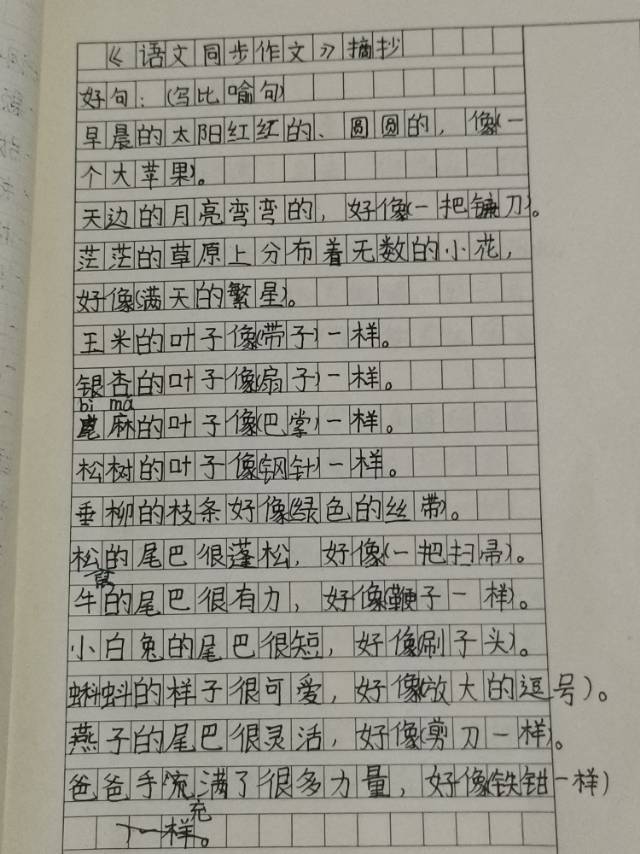 《语文同步作文》摘抄
好句：（写比喻句）
早晨的太阳红红的、圆圆的，像（一
个大苹果）。
天边的月亮弯弯的，好像（一把镰刀）。
茫茫的草原上分布着无数的小花，
好像（满天的繁星）。
玉米的叶子像（带子）一样。
银杏的叶子像（扇子）一样。
bì má
蓖麻的叶子像（巴掌）一样。
松树的叶子像（钢针）一样。
垂柳的枝条好像（绿色的丝带）。
松鼠的尾巴很蓬松，好像（一把扫帚）。
牛的尾巴很有力，好像（鞭子一样）。
小白兔的尾巴很短，好像（刷子头）。
蝌蚪的样子很可爱，好像（放大的逗号）。
燕子的尾巴很灵活，好像（剪刀一样）。
爸爸手充满了很多力量，好像（铁钳一样）
一样。